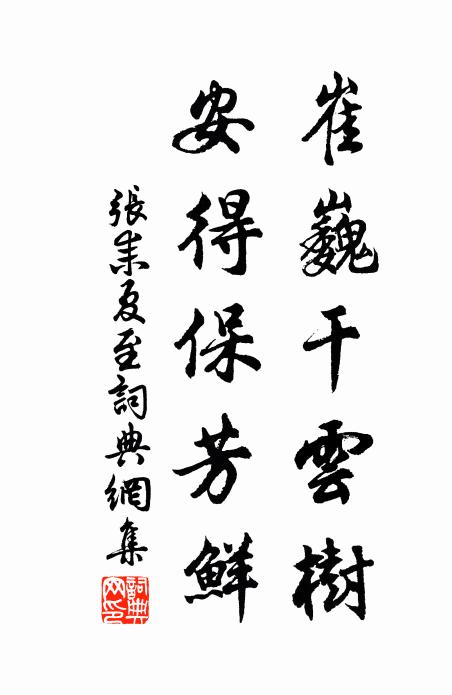 崔巍干雲樹
安得保芳鮮
張耒夏至詞典網集
詞典網印